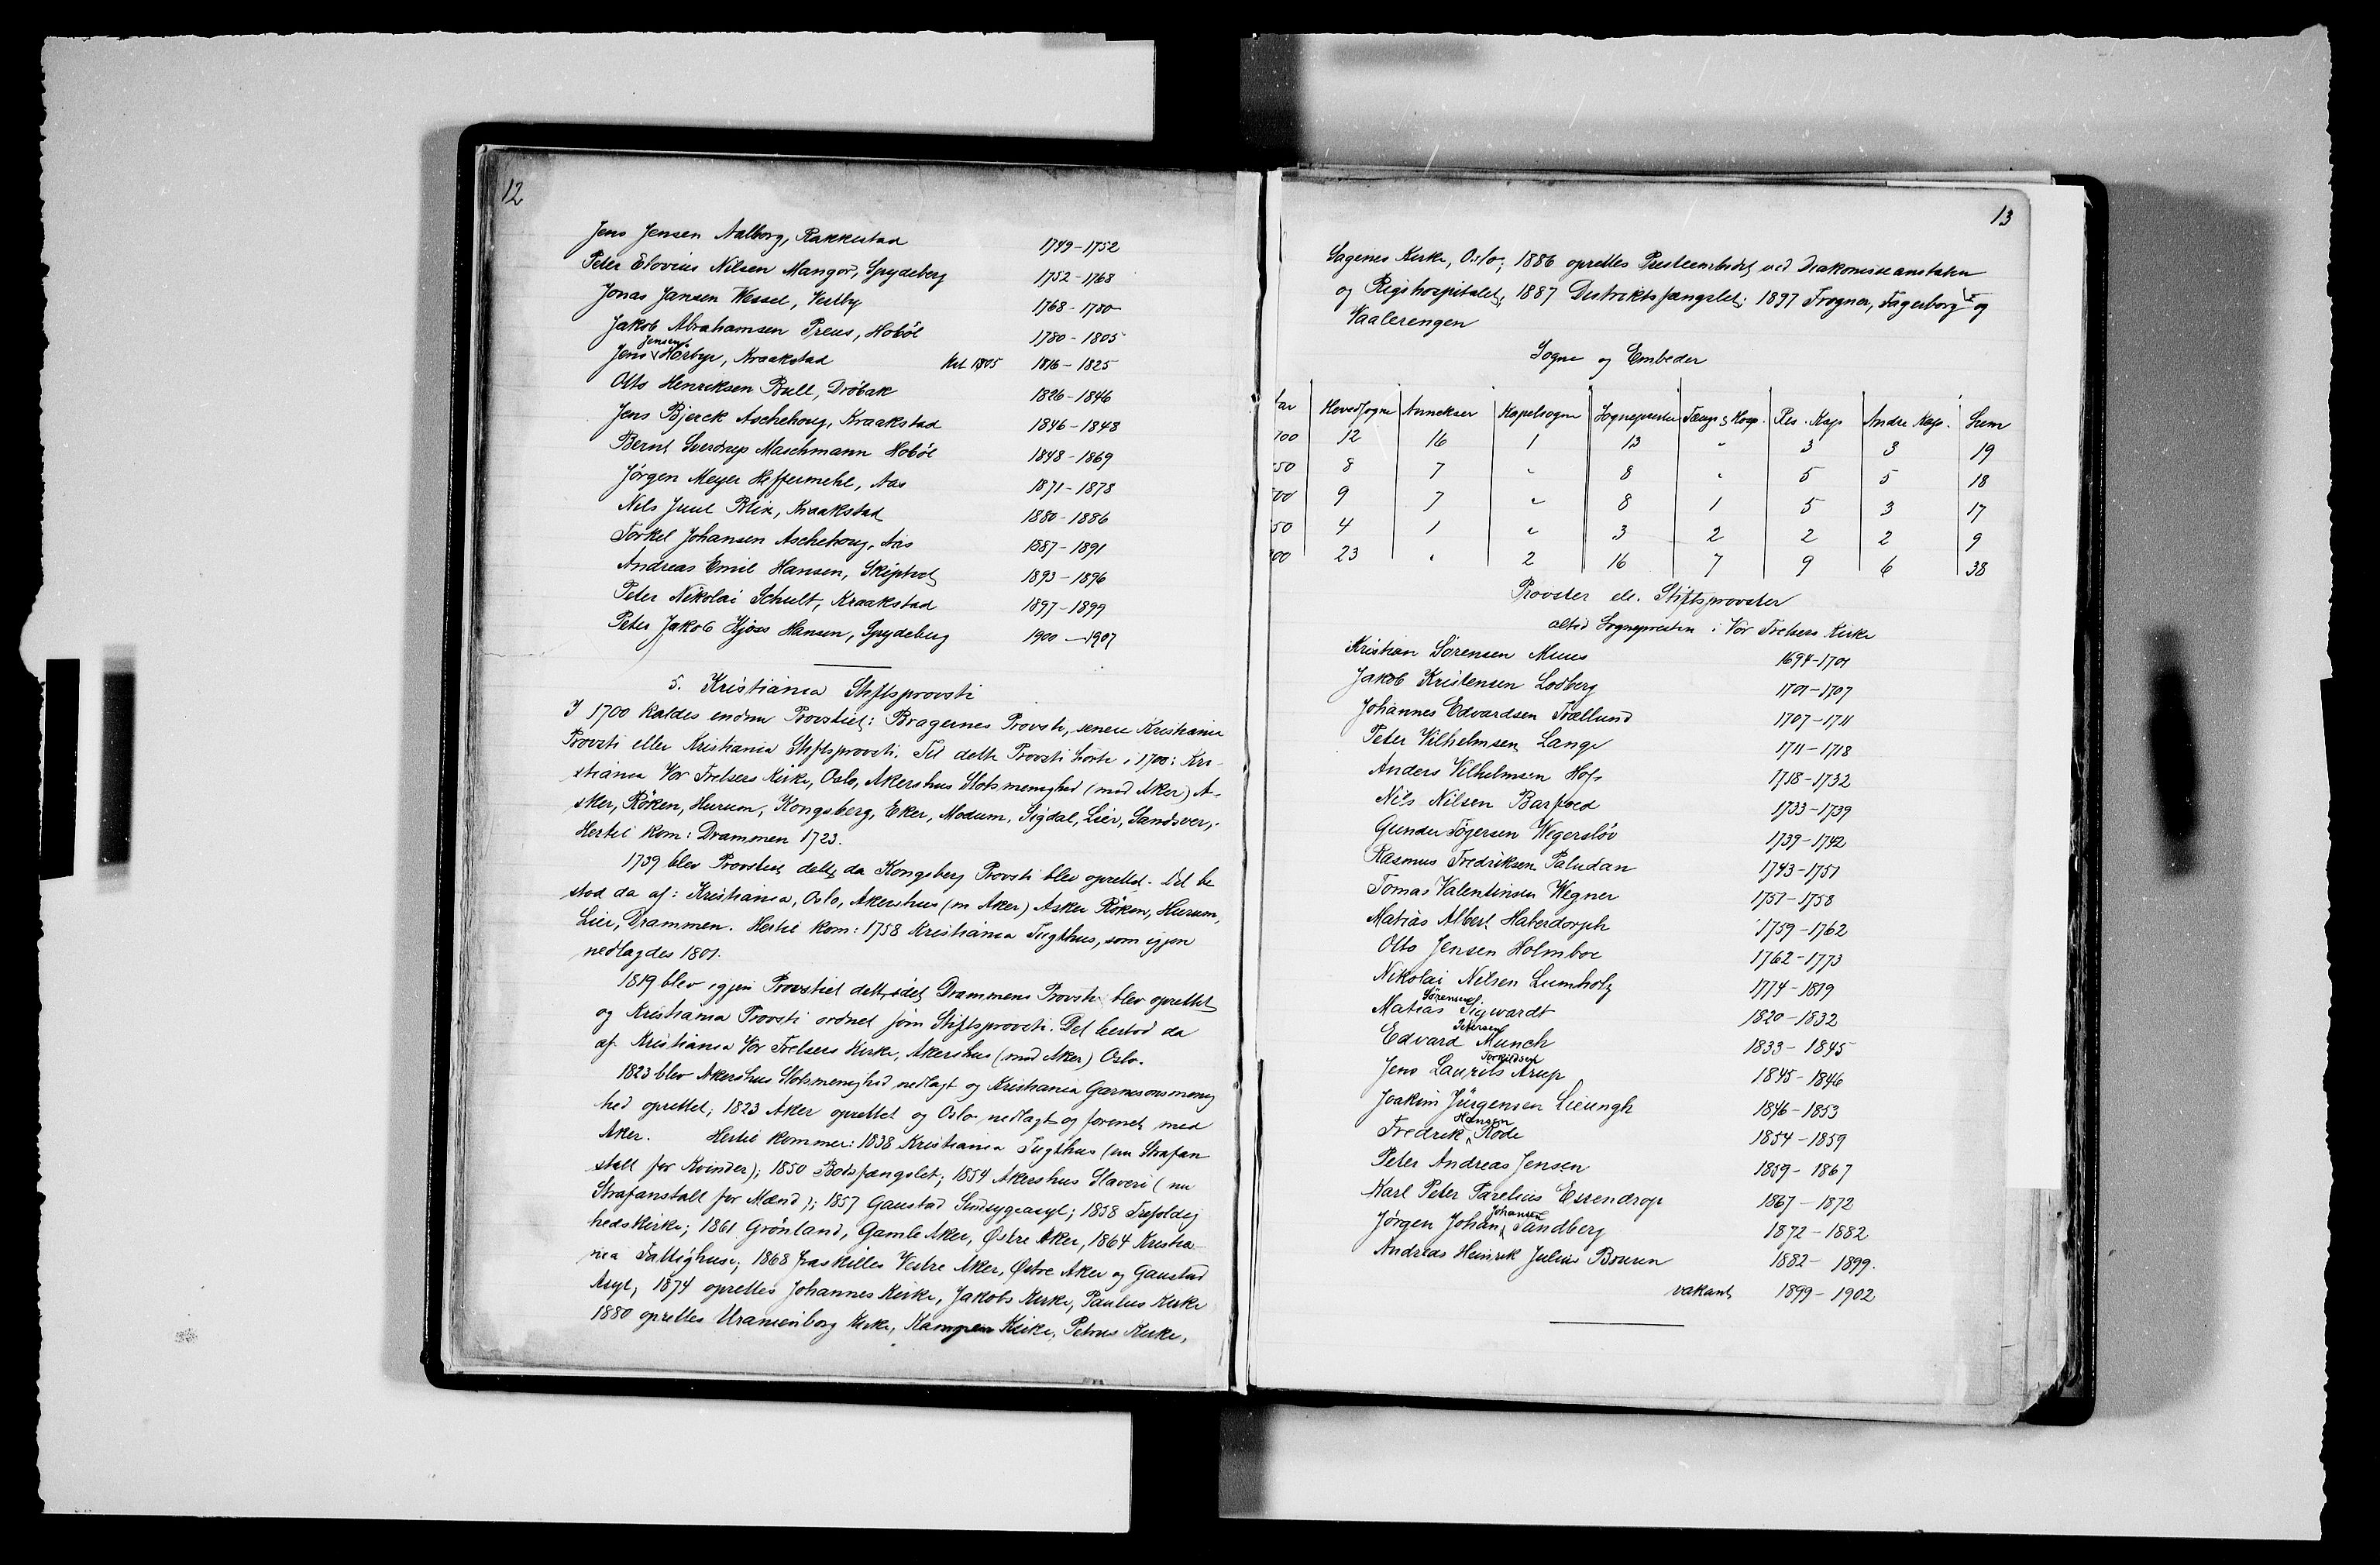 12
Jens Jensen Aalborg, Rakkestad 1749-1752
Peter Elovius Nilsen Mangor, Spydeberg 1752-1768
Jonas Jansen Wessel, Vestby 1768-1780
Jakob Abrahamsen Preus, Hobøl 1780-1805
Jens Jensen Hørbye, Kraakstad kst 1805 1816-1825
Otto Henriksen Bull, Drøbak 1826-1846
Jens Bjerck Aschehoug, Kraakstad 1846-1848
Bernt Sverdrup Maschmann Hobøl 1848-1869
Jørgen Meyer Heffermehl, Aas 1871-1878
Nils Juul Blix, Kraakstad 1880-1886
Torkel Johansen Aschehoug, Aas 1887-1891
Andreas Emil Hansen, Skiptvet 1893-1896
Peter Nikolai Schult, Kraakstad 1897-1899
Peter Jakob Hjoss Hansen, Spydeberg 1900-1907
5. Kristiania Stiftsprovsti
I 1700 kaldes endnu Provstiet: Bragernes Provsti, senere Kristiania
Provsti eller Kristiania Stiftsprovsti. Til dette Provsti hørte i 1700: Kri-
stiania Vor Frelsers Kirke, Oslo, Akershus Slotsmenighed (med Aker) A-
sker, Røken, Hurum, Kongsberg, Eker, Modum, Sigdal, Lier, Sandsver,.
Hertil kom: Drammen 1723.
1739 blev Provstiet delt, da Kongsberg Provsti blev oprettet. Det be
stod da af: Kristiania, Oslo, Akershus (m Aker) Asker Røken, Hurum,
Lier, Drammen. Hertil kom: 1758 Kristiania Tugthus, som igjen
nedlagdes 1801.
1819 blev igjen Provstiet delt, idet Drammens Provsti blev oprettet
og Kristiania Provsti ordnet som Stiftsprovsti. Det bestod da
af Kristiania Vor Frelsers Kirke, Akershus (med Aker) Oslo.
1823 blev Akershus Slotsmenighed nedlagt og Kristiania Garnisonsmenig
hed oprettet; 1823 Aker oprettet og Oslo nedlagt og forenet med
Aker. Hertil kommer: 1838 Kristiania Tugthus (nu Strafan
stalt for Kvinder); 1850 Botsfængslet; 1854 Akershus Slaveri (nu
Strafanstalt for Mænd); 1857 Gaustad Sindsygeasyl; 1858 Trefoldig
hedskirke; 1861 Grønland, Gamle Aker, Østre Aker, 1864 Kristia-
nia Fattighuse; 1868 fraskilles Vestre Aker, Østre Aker og Gaustad
Asyl, 1874 oprettes Johannes Kirke, Jakobs Kirke, Paulus Kirke
1880 oprettes Uranienborg Kirke, Kampen Kirke, Petrus Kirke,
13
Sagenes Kirke, Oslo; 1886 oprettes Presteembedet ved Diakonisseanstalten
og Rigshospitalet; 1887 Distriktsfængslet; 1897 Frogner, Fagerborg og
Vaalerengen
Sogne og Embeder
Aar Hovedsogne Annekser Kapelsogne Sogneprester Fængs & Hosp. Res. Kap Andre Kap. Sum
700 12 16 1 13 " 3 3 19
50 8 7 " 8 " 5 5 18
00 9 7 " 8 1 5 3 17
50 4 1 " 3 2 2 2 9
00 23 " 2 16 7 9 6 38
Provster ell. Stiftsprovster
altid Sognepresten i Vor Frelsers Kirke
Kristian Sørensen Muus 1694-1701
Jakob Kristensen Lodberg 1701-1707
Johannes Edvardsen Trællund 1707-1711
Peter Vilhelmsen Lange 1711-1718
Anders Vilhelmsen Hof 1718-1732
Nils Nilsen Barfoed 1733-1739
Gunder Tøgersen Wegersløv 1739-1742
Rasmus Fredriksen Paludan 1743-1751
Tomas Valentinsen Wegner 1751-1758
Matias Albert Haberdorph 1759-1762
Otto Jensen Holmboe 1762-1773
Nikolai Nilsen Lumholtz 1774-1819
Matias Sørensen Sigwardt 1820-1832
Edvard Petersen Munch 1833-1845
Jens Laurits Arup 1845-1846
Joakim Jürgensen Lieungh 1846-1853
Fredrik Hansen Rode 1854-1859
Peter Andreas Jensen 1859-1867
Karl Peter Parelius Essendrop 1867-1872
Jørgen Johan Johansen Sandberg 1872-1882
Andreas Heinrik Julius Bruun 1882-1899.
vakant 1899-1902